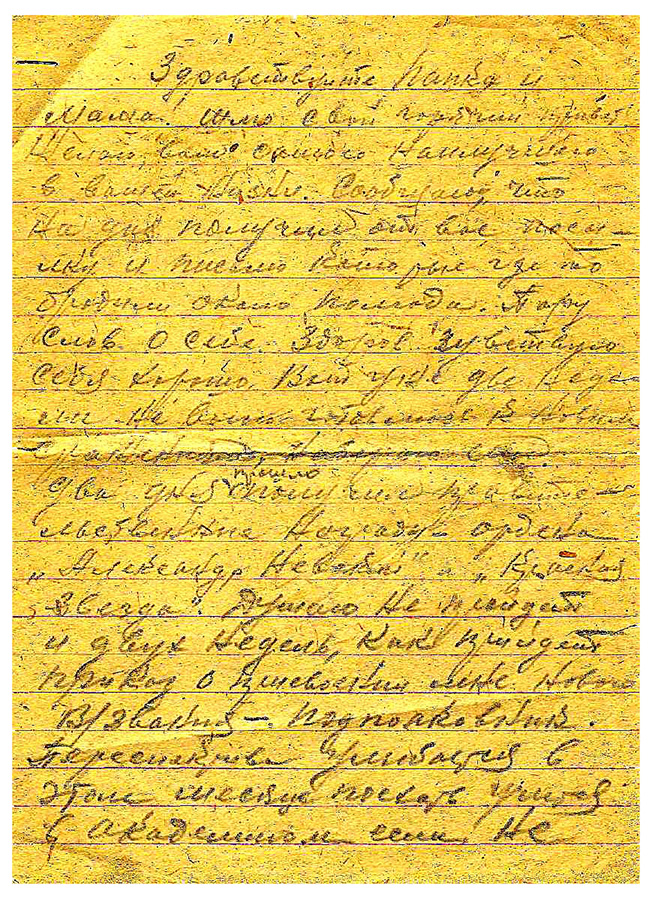 Здравствуйте Папка и
Мама! шлю свой горячий привет
Желаю вам самого наилучшего
в вашей жизни. Сообщаю, что
на днях получил от вас посы-
лку и письмо которые где то
бродили около полгода. Пару
слов о себе. Здоров чувствую
себя хорошо. Вот уже две неде-
ли не были готовимся к новым
два дня прошло получил правите-
льственные награды ордена
„Александр Невский" и „Красная
звезда". Думаю не пройдет
и двух недель, как прийдет
приказ о присвоении мне нового
в/звания – подполковник.
Перспектива улыбается в
этом месяце поехать учится
в академию если не